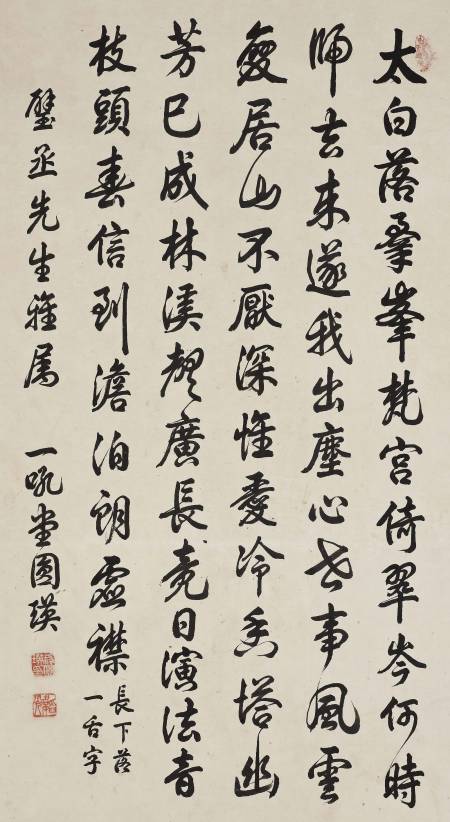 太白落羣峯梵宮倚翠岑何時
師去来遂我出塵心世事風雲
變居山不厭深惟愛冷香塔幽
芳已成林溪聲廣長竟日演法音
枝頭春信到澹泊朗虛襟
長下落
一舌字
璧丞先生雅属 一吼堂圓瑛